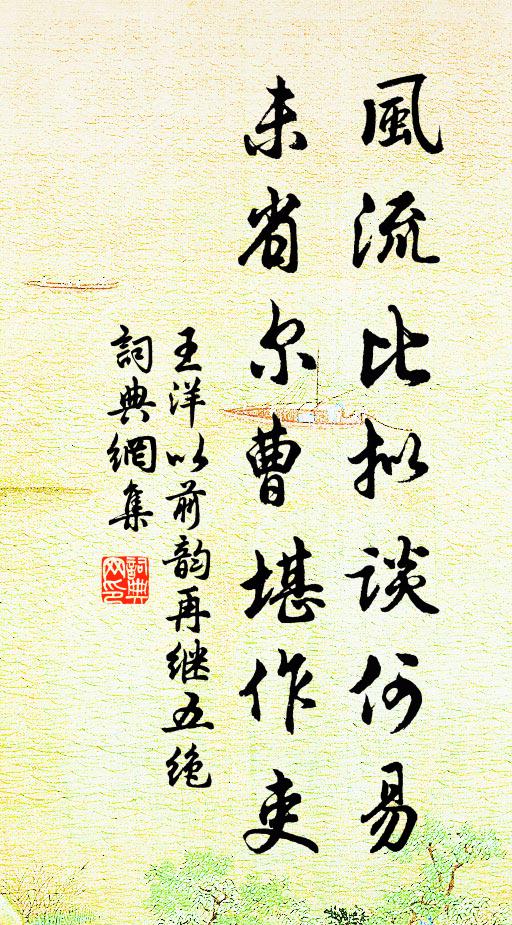 風流比拟談何易
未省尔曹堪作吏
王洋以前韵再继五绝
詞典網集
詞典
网印